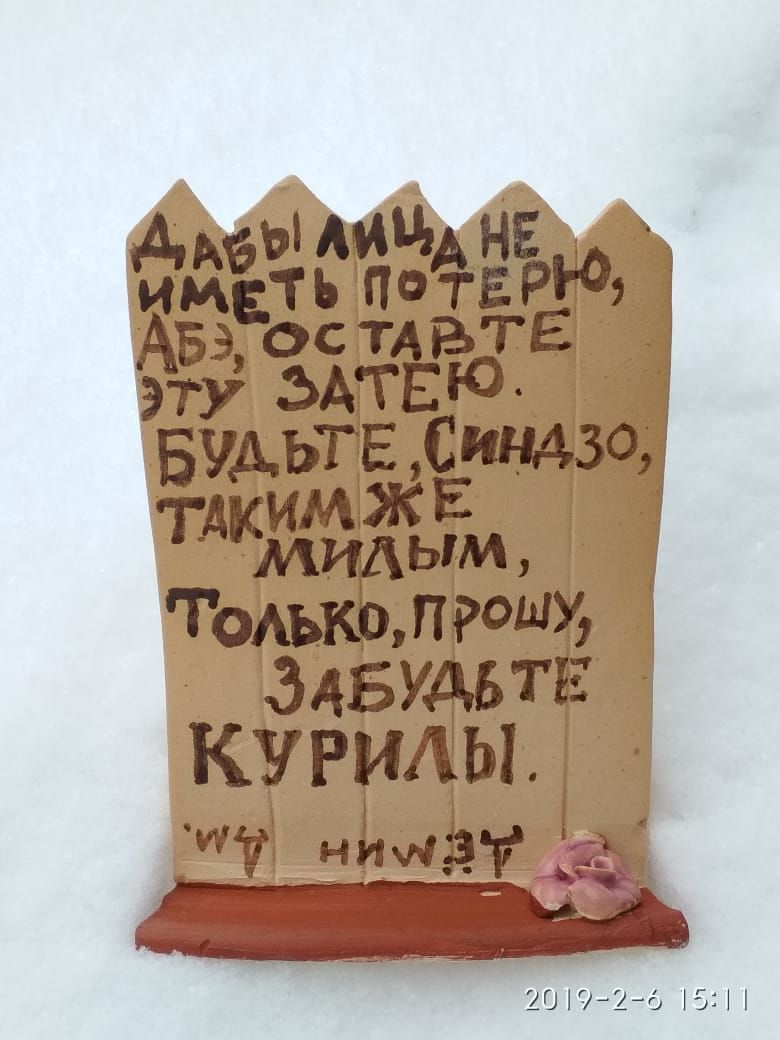 ДАБЫ ЛИЦА НЕ
ИМЕТЬ ПОТЕРЮ,
АБЭ, ОСТАВТЕ
ЭТУ ЗАТЕЮ.
БУДЬТЕ, СИНДЗО,
ТАКИМ ЖЕ
МИЛЫМ,
ТОЛЬКО, ПРОШУ,
ЗАБУДЬТЕ
КУРИЛЫ.
ДЁМИН ДМ.
2019-2-6 15:11